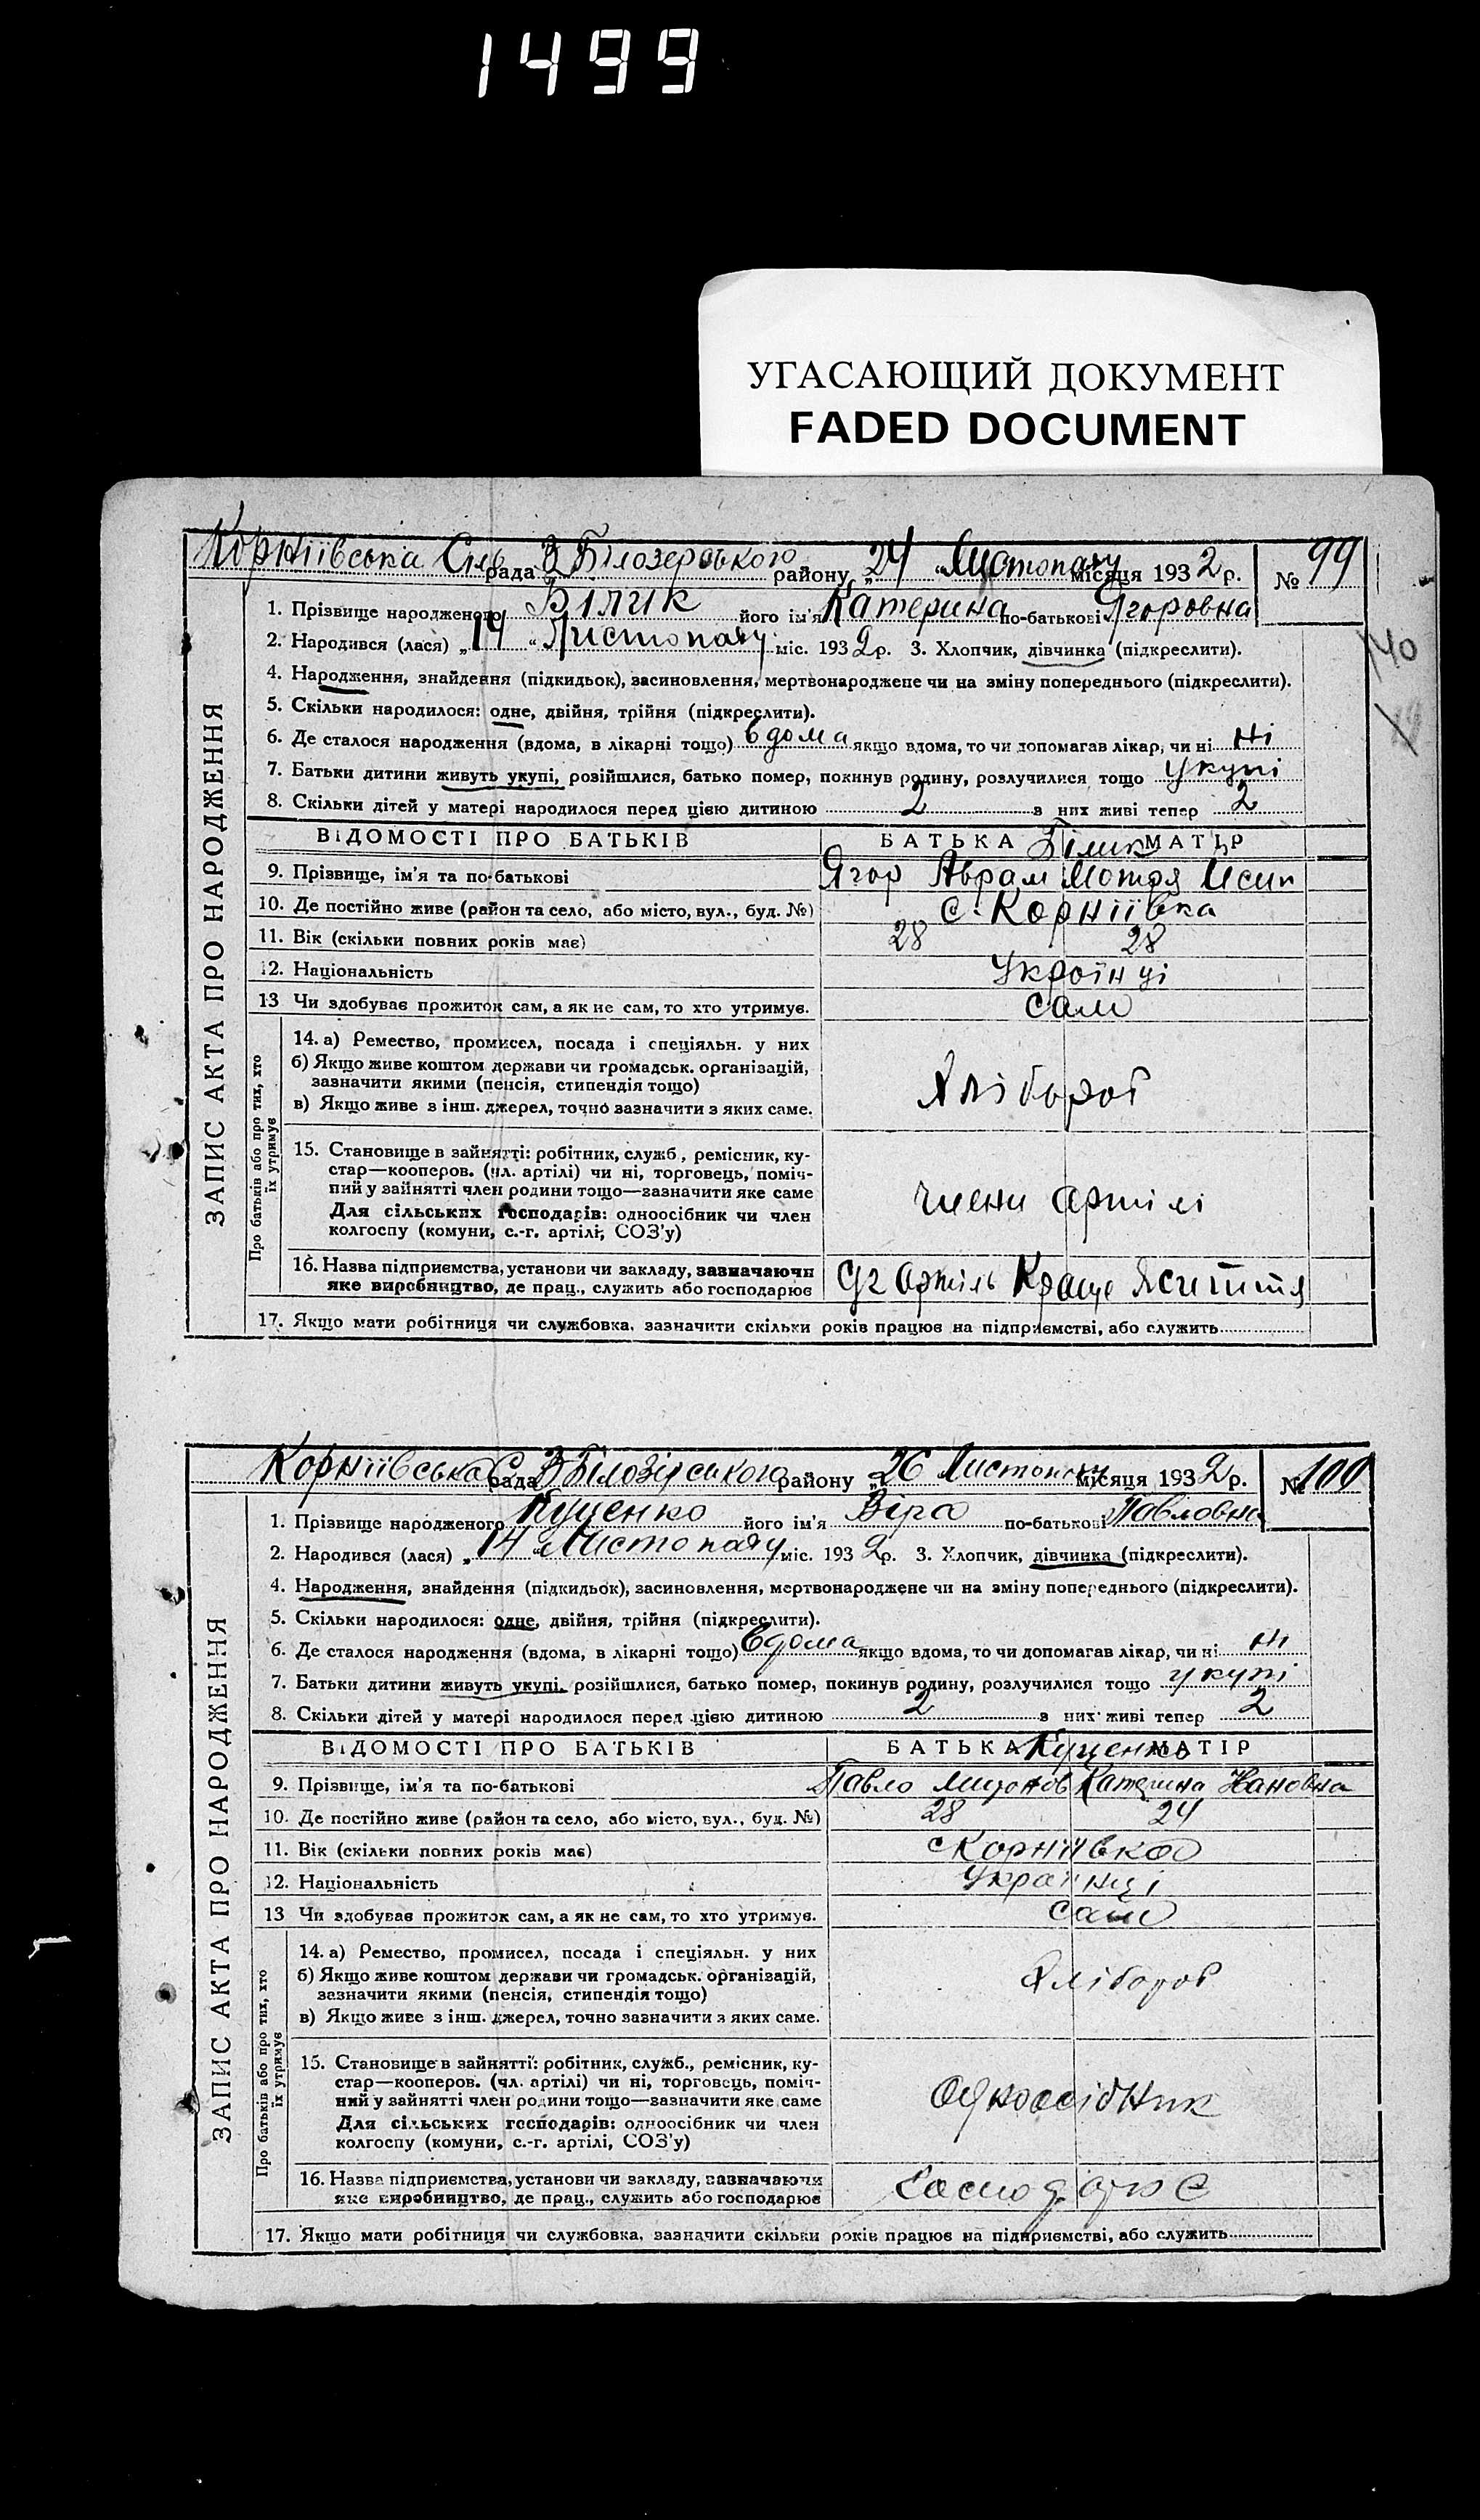 1499
УГАСАЮЩИЙ ДОКУМЕНТ
FADED DOCUMENT
Корніївська Сил рада З Білозерського району „24 “ Листопаду місяця 1932 р. № 99
ЗАПИС АКТА ПРО НАРОДЖЕННЯ
1. Прізвище народженого Білик його ім'я Катерина по-батькові Ягоровна
2. Народився (лася) „14 “ Листопаду міс. 1932 р. 3. Хлопчик, дівчинка (підкреслити).
140
4. Народження, знайдення (підкидьок), засиновлення, мертвонароджене чи на зміну попереднього (підкреслити).
5. Скільки народилося: одне, двійня, трійня (підкреслити).
6. Де сталося народження (вдома, в лікарні тощо) вдома якщо вдома, то чи допомагав лікар, чи ні ні
7. Батьки дитини живуть укупі, розійшлися, батько помер, покинув родину, розлучилися тощо укупі
8. Скільки дітей у матері народилося перед цією дитиною 2 з них живі тепер 2
ВІДОМОСТІ ПРО БАТЬКІВ БАТЬКА Білик МАТІР
9. Прізвище, ім'я та по-батькові Ягор Аврам Мотря Исип
10. Де постійно живе (район та село, або місто, вул., буд. №) с. Корніївка
11. Вік (скільки повних років має) 28 28
12. Національність Українці
13 Чи здобуває прожиток сам, а як не сам, то хто утримує. сам
Про батьків або про тих, хто
їх утримує
14. а) Ремество, промисел, посада і спеціяльн. у них
б) Якщо живе коштом держави чи громадськ. організацій,
зазначити якими (пенсія, стипендія тощо)
в) Якщо живе з інш. джерел, точно зазначити з яких саме.
Хлібороб
15. Становище в зайнятті: робітник, служб., ремісник, ку-
стар—кооперов. (чл. артілі) чи ні, торговець, поміч-
ний у зайнятті член родини тощо—зазначити яке саме
Для сільських господарів: одноосібник чи член
колгоспу (комуни, с.-г. артілі, СОЗ'у)
члени артілі
16. Назва підприємства, установи чи закладу, зазначаючи
яке виробництво, де прац., служить або господарює
артіль Краще
17. Якщо мати робітниця чи службовка, зазначити скільки років працює на підприємстві, або служить
Корніївська С рада З Білозірського району „26 Листопаду місяця 1932 р. № 100
ЗАПИС АКТА ПРО НАРОДЖЕННЯ
1. Прізвище народженого Куценко його ім'я Віра по-батькові Павловна
2. Народився (лася) „14 “ Листопаду міс. 1932 р. 3. Хлопчик, дівчинка (підкреслити).
4. Народження, знайдення (підкидьок), засиновлення, мертвонароджене чи на зміну попереднього (підкреслити).
5. Скільки народилося: одне, двійня, трійня (підкреслити).
6. Де сталося народження (вдома, в лікарні тощо) вдома якщо вдома, то чи допомагав лікар, чи ні ні
7. Батьки дитини живуть укупі, розійшлися, батько помер, покинув родину, розлучилися тощо укупі
8. Скільки дітей у матері народилося перед цією дитиною 2 з них живі тепер 2
ВІДОМОСТІ ПРО БАТЬКІВ БАТЬКА Куценко МАТІР
9. Прізвище, ім'я та по-батькові Павло Катерина
10. Де постійно живе (район та село, або місто, вул., буд. №) 28 24
11. Вік (скільки повних років має) с Корніївка
12. Національність Українці
13 Чи здобуває прожиток сам, а як не сам, то хто утримує. сам
Про батьків або про тих, хто
їх утримує
14. а) Ремество, промисел, посада і спеціяльн. у них
б) Якщо живе коштом держави чи громадськ. організацій,
зазначити якими (пенсія, стипендія тощо)
в) Якщо живе з інш. джерел, точно зазначити з яких саме.
Хлібороб
15. Становище в зайнятті: робітник, служб., ремісник, ку-
стар—кооперов. (чл. артілі) чи ні, торговець, поміч-
ний у зайнятті член родини тощо—зазначити яке саме
Для сільських господарів: одноосібник чи член
колгоспу (комуни, с.-г. артілі, СОЗ'у)
Одноосібник
16. Назва підприємства, установи чи закладу, зазначаючи
яке виробництво, де прац., служить або господарює
Господарює
17. Якщо мати робітниця чи службовка, зазначити скільки років працює на підприємстві, або служить